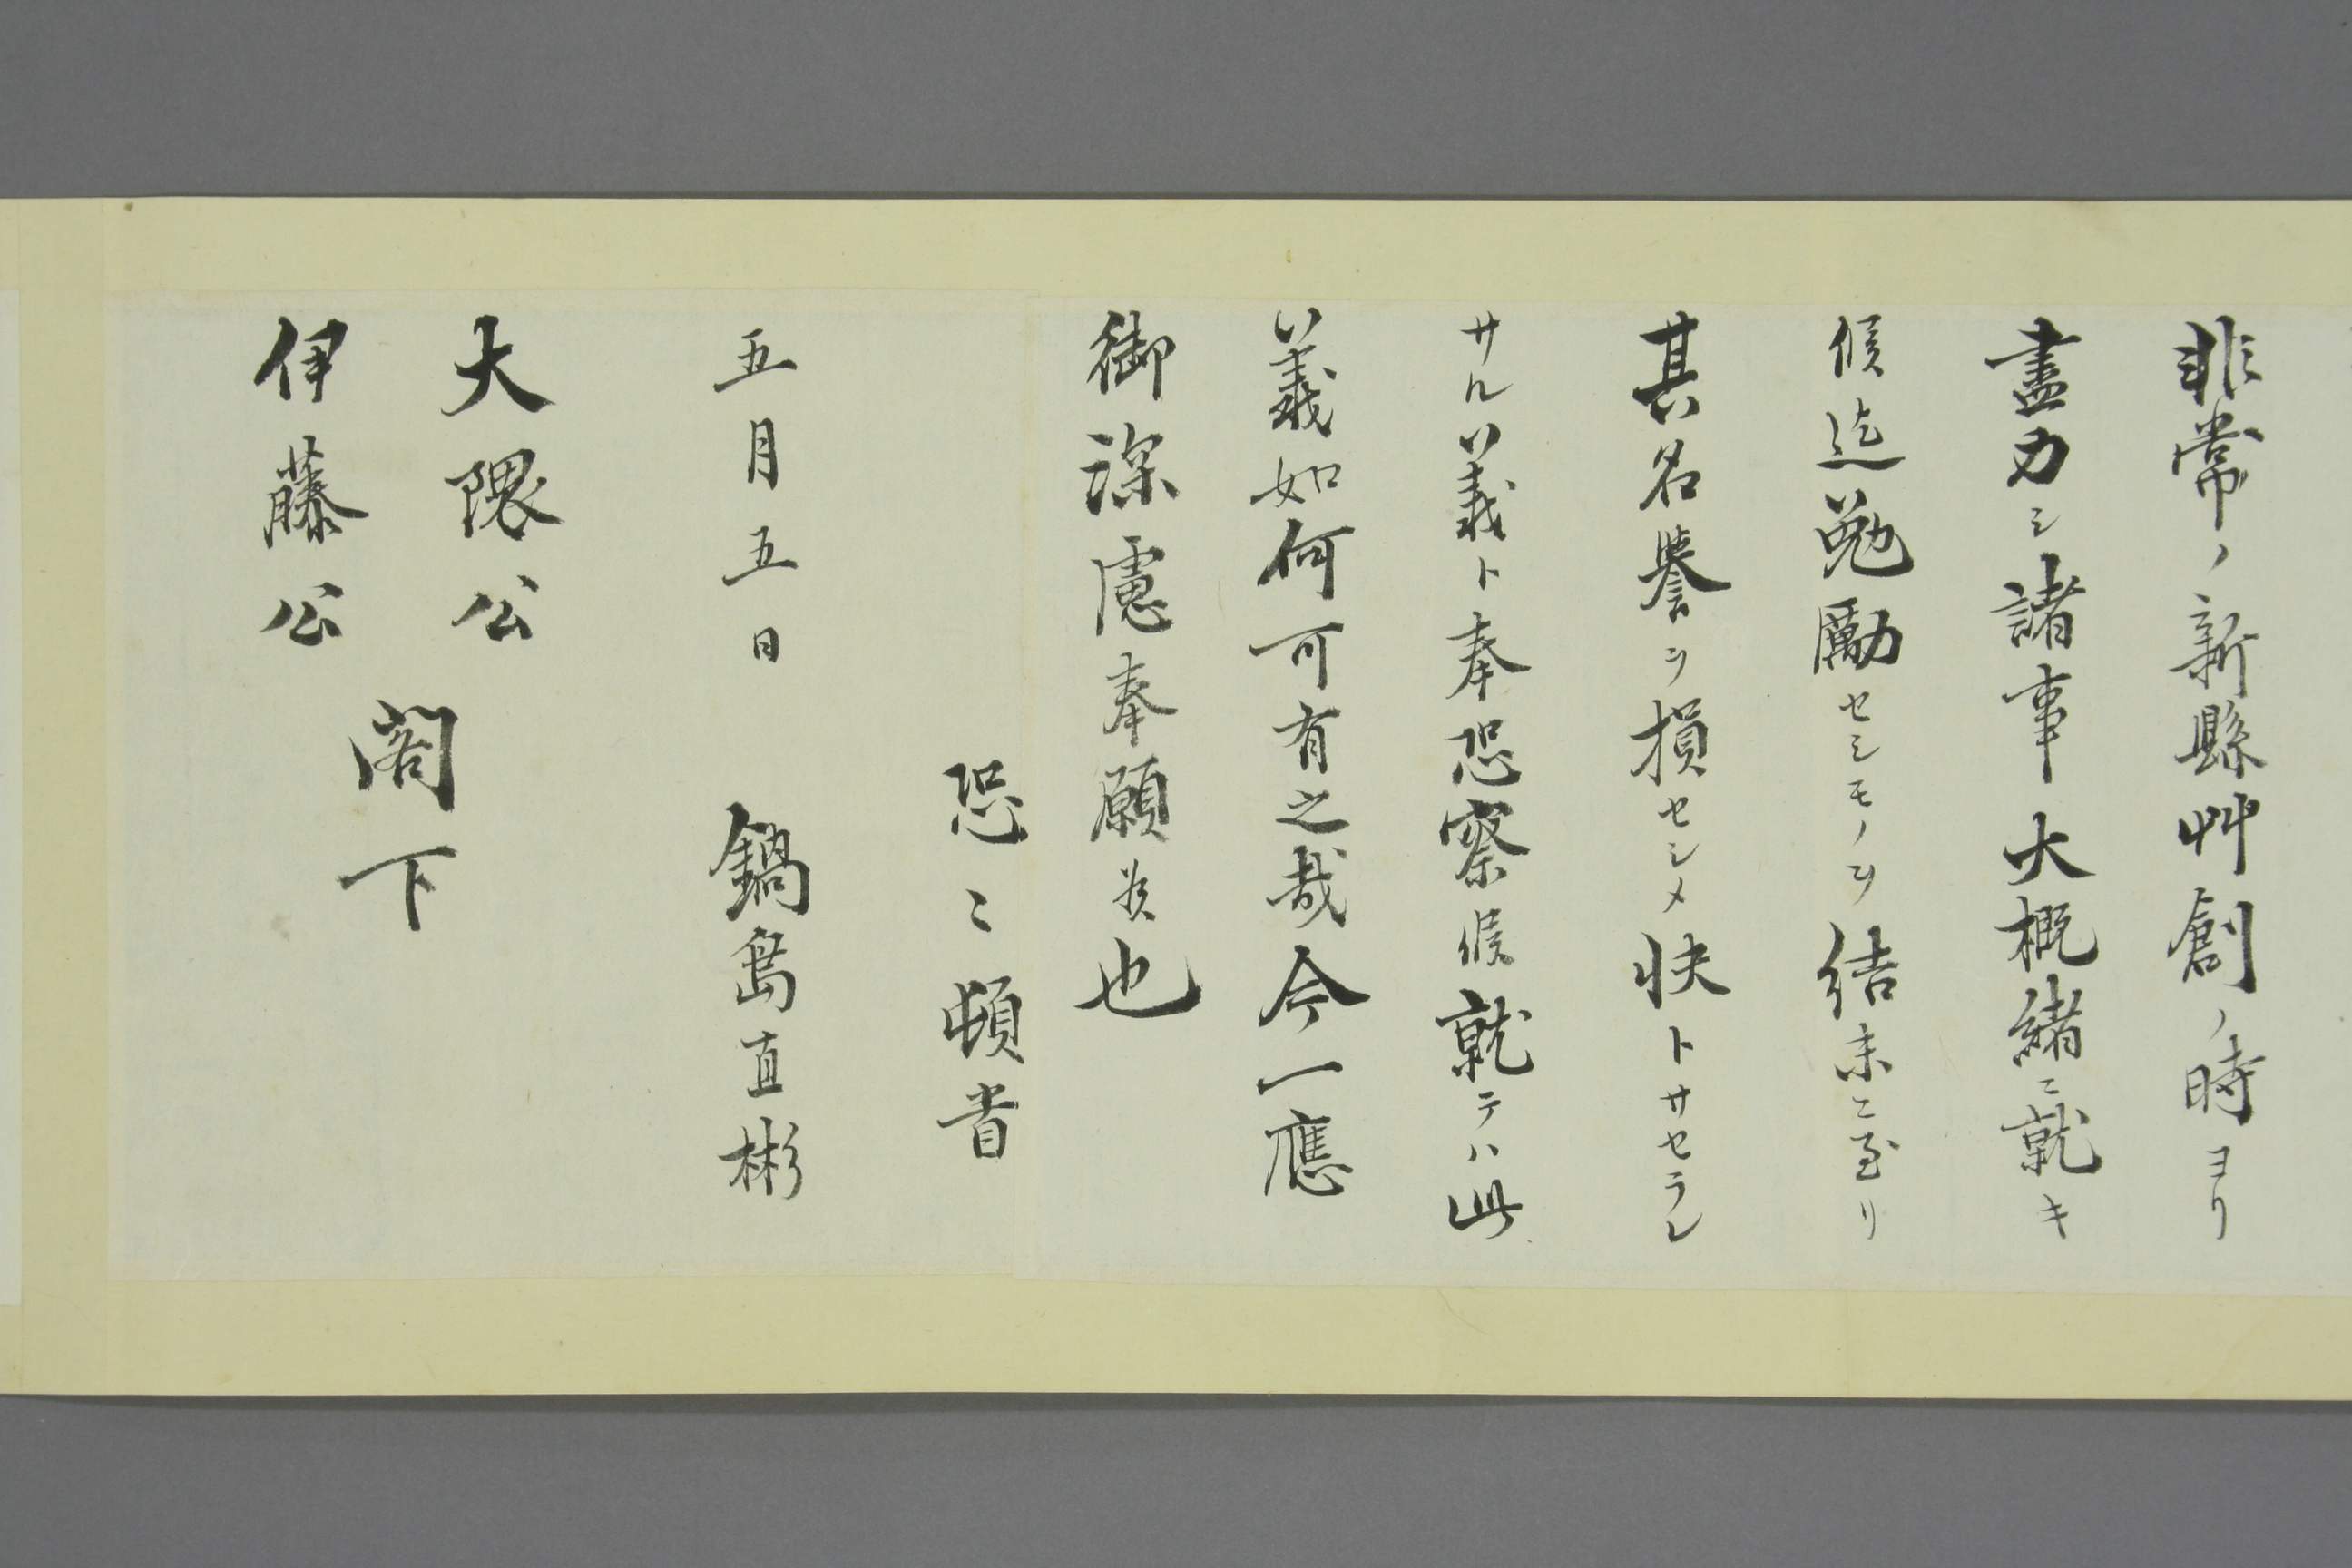 非常ノ新縣艸創ノ時ヨリ
盡力シ諸事大概緒ニ就キ
候迄勉勵セシモノヲ結末ニ至リ
其名譽ヲ損セシメ快トサセラレ
サル御義ト奉恐察候就テハ此
御義如何可有之哉今一應
御深慮奉願候也
恐々頓首
五月五日 鍋島直彬
大隈公
伊藤公
閣下